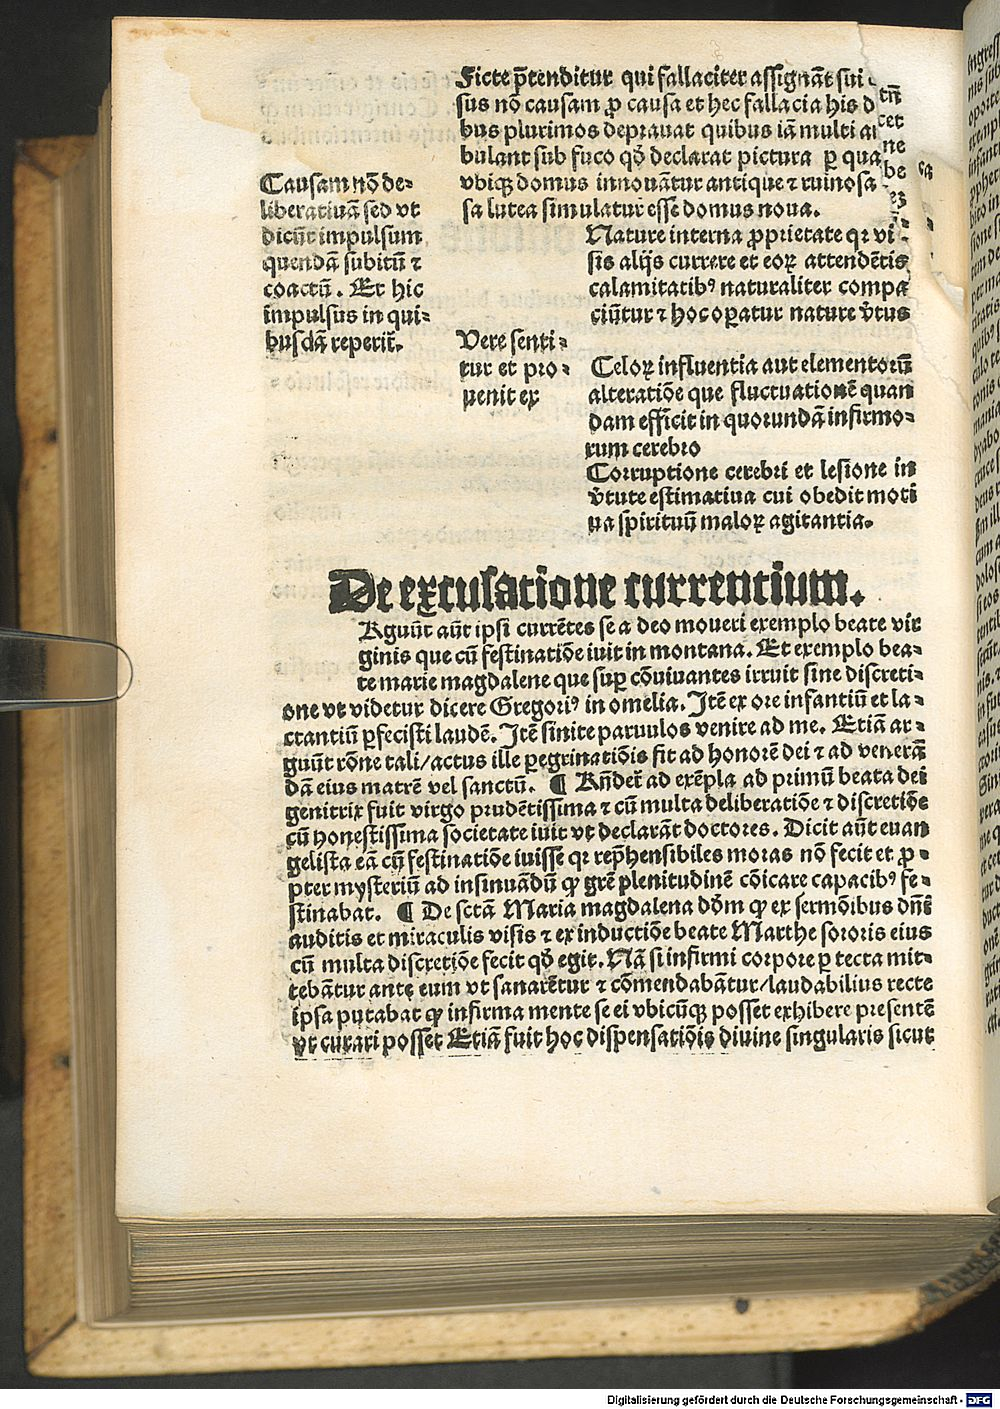 Ficte p̄tenditur qui fallaciter assignāt sui
sus nō causam ꝓ causa et hec fallacia his
bus plurimos deprauat quibus iā multi
bulant sub fuco qđ declarat pictura ꝑ qua
vbiqꝫ domus innouātur antique ⁊ ruinosa
sa lutea simulatur esse domus noua.
Causam nō de⸗
liberatiuā sed vt
dicūt impulsum
quendā subitū ⁊
coactū. Et hic
impulsus in qui⸗
busdā reperit̄.
Vere senti⸗
tur et pro⸗
uenit ex
Nature interna ꝓprietate qꝛ vi⸗
sis alijs currere et eoꝝ attendētis
calamitatibꝰ naturaliter compa
ciūtur ⁊ hoc oꝑatur nature v̄tus
Celoꝝ influentia aut elementorū
alteratiōe que fluctuationē quan
dam efficit in quorundā infirmo⸗
rum cerebro
Corruptione cerebri et lesione in
v̄tute estimatiua cui obedit moti
ua spirituū maloꝝ agitantia.
De excusatione currentium.
Arguūt aūt ipsi currētes se a deo moueri exemplo beate vir
ginis que cū festinatiōe iuit in montana. Et exemplo bea⸗
te marie magdalene que suꝑ cōuiuantes irruit sine discreti⸗
one vt videtur dicere Gregoriꝰ in omelia. Itē ex ore infantiū et la⸗
ctantiū ꝑfecisti laudē. Itē sinite paruulos venire ad me. Etiā ar⸗
guūt rōne tali/actus ille ꝑegrinatiōis fit ad honorē dei ⁊ ad venerā
dā eius matrē vel sanctū. ¶ Rn̄det̄ ad exēpla ad primū beata dei
genitrix fuit virgo prudētissima ⁊ cū multa deliberatiōe ⁊ discretiōe
cū honestissima societate iuit vt declarāt doctores. Dicit aūt euan
gelista eā cū festinatiōe iuisse qꝛ rep̄hensibiles moras nō fecit et ꝓ⸗
pter mysteriū ad insinuādū ꝙ grē plenitudinē cōicare capacibꝰ fe⸗
stinabat. ¶ De sctā Maria magdalena dōm ꝙ ex sermōibus dn̄i
auditis et miraculis visis ⁊ ex inductiōe beate Marthe sororis eius
cū multa discretiōe fecit qđ egit. Nā si infirmi corpore ꝑ tecta mit⸗
tebātur ante eum vt sanarētur ⁊ cōmendabātur/laudabilius recte
ipsa putabat ꝙ infirma mente se ei vbicūqꝫ posset exhibere presentē
vt curari posset Etiā fuit hoc dispensatiōis diuine singularis sicut
Digitalisierung gefördert durch die Deutsche Forschungsgemeinschaft - DFG